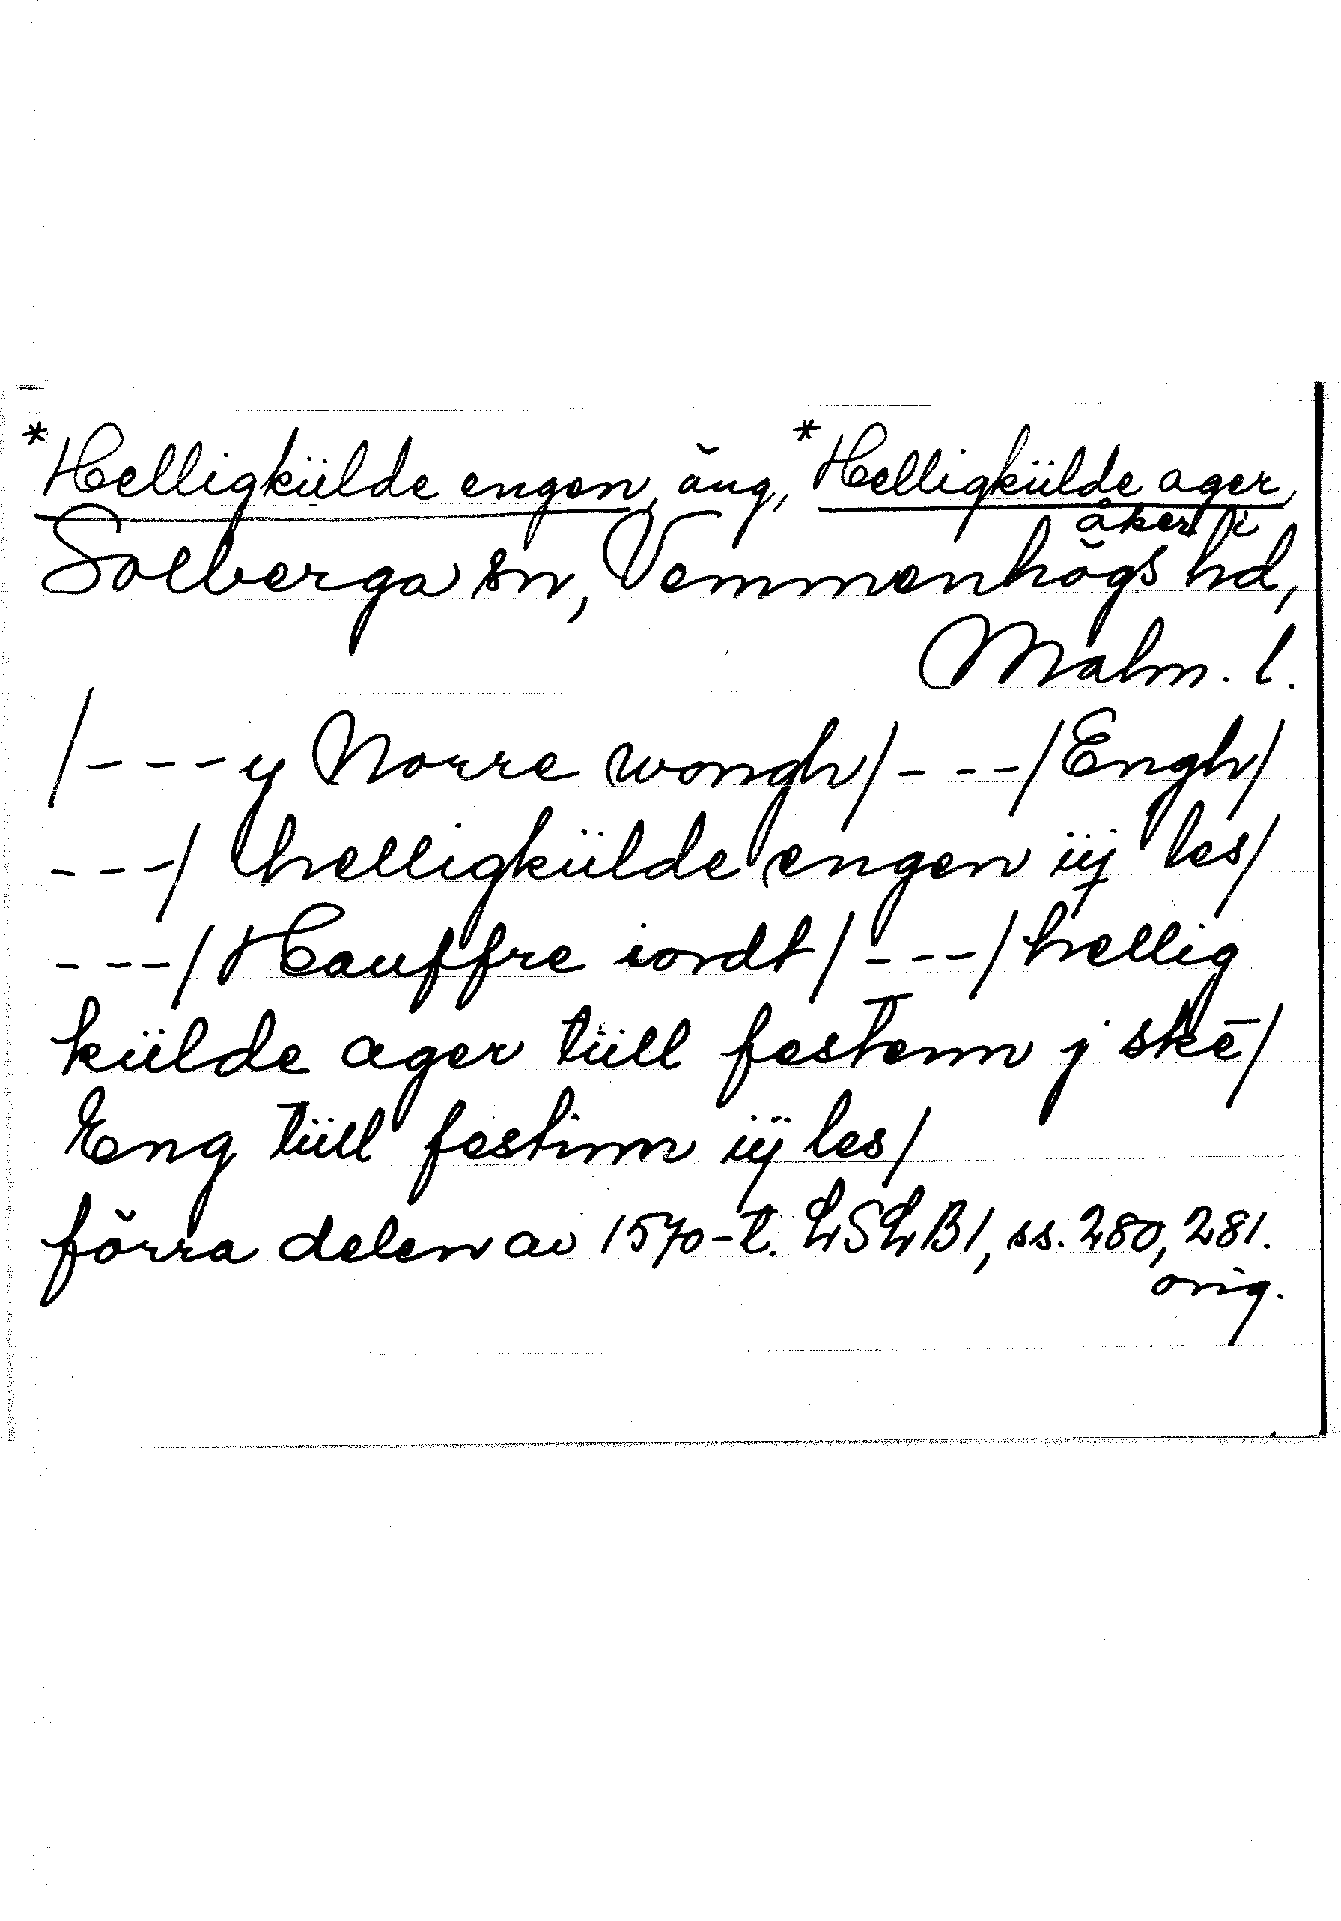 *Helligkülde engen, äng, *Helligkülde ager,
åker i
Solberga sn, Vemmenhögs hd,
Malm. l.
/---y Norre wongh/---/Engh/
---/ helligkülde engen iij les/
---/Hauffre iordt/---/hellig
külde ager tüll festenn j skē/
Eng tüll festinn iij les/
förra delen av 1570-t. LSLB1, ss. 280, 281.
orig.